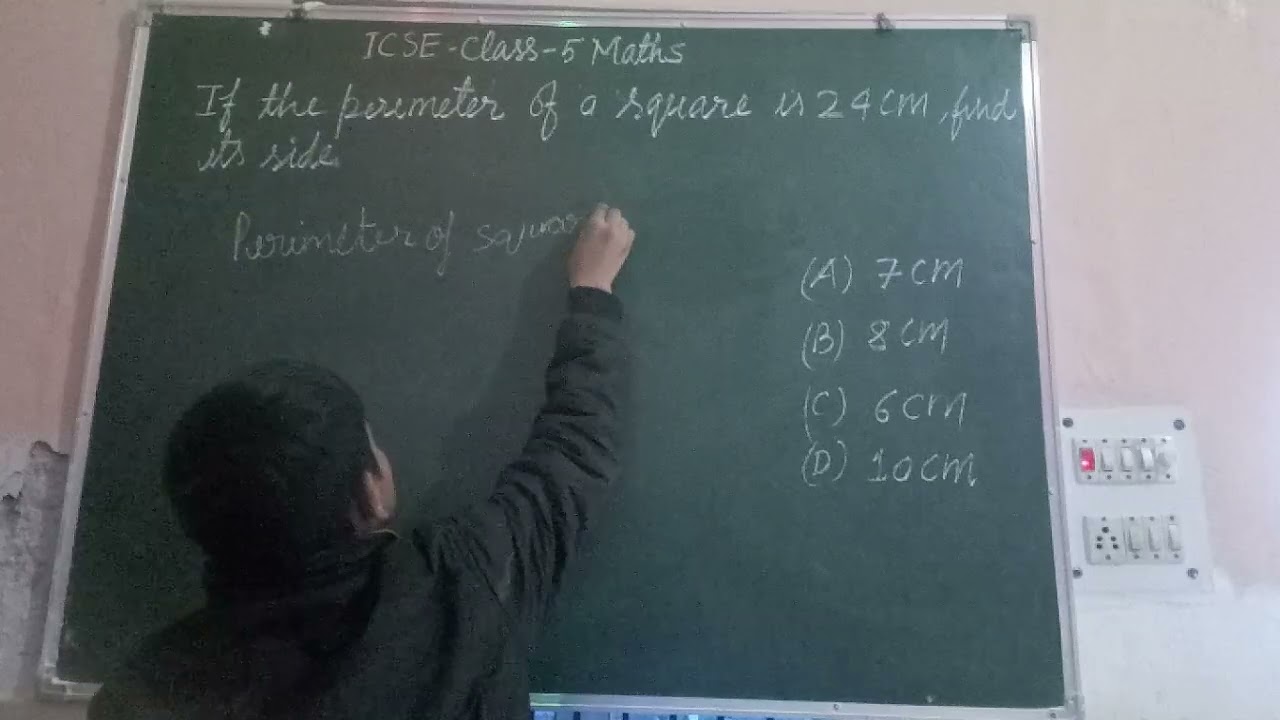 ICSE-Class-5 Maths
If the perimeter of a square is 24cm, find
its side.
Perimeter of squar
(A) 7cm
(B) 8cm
(C) 6cm
(D) 10cm